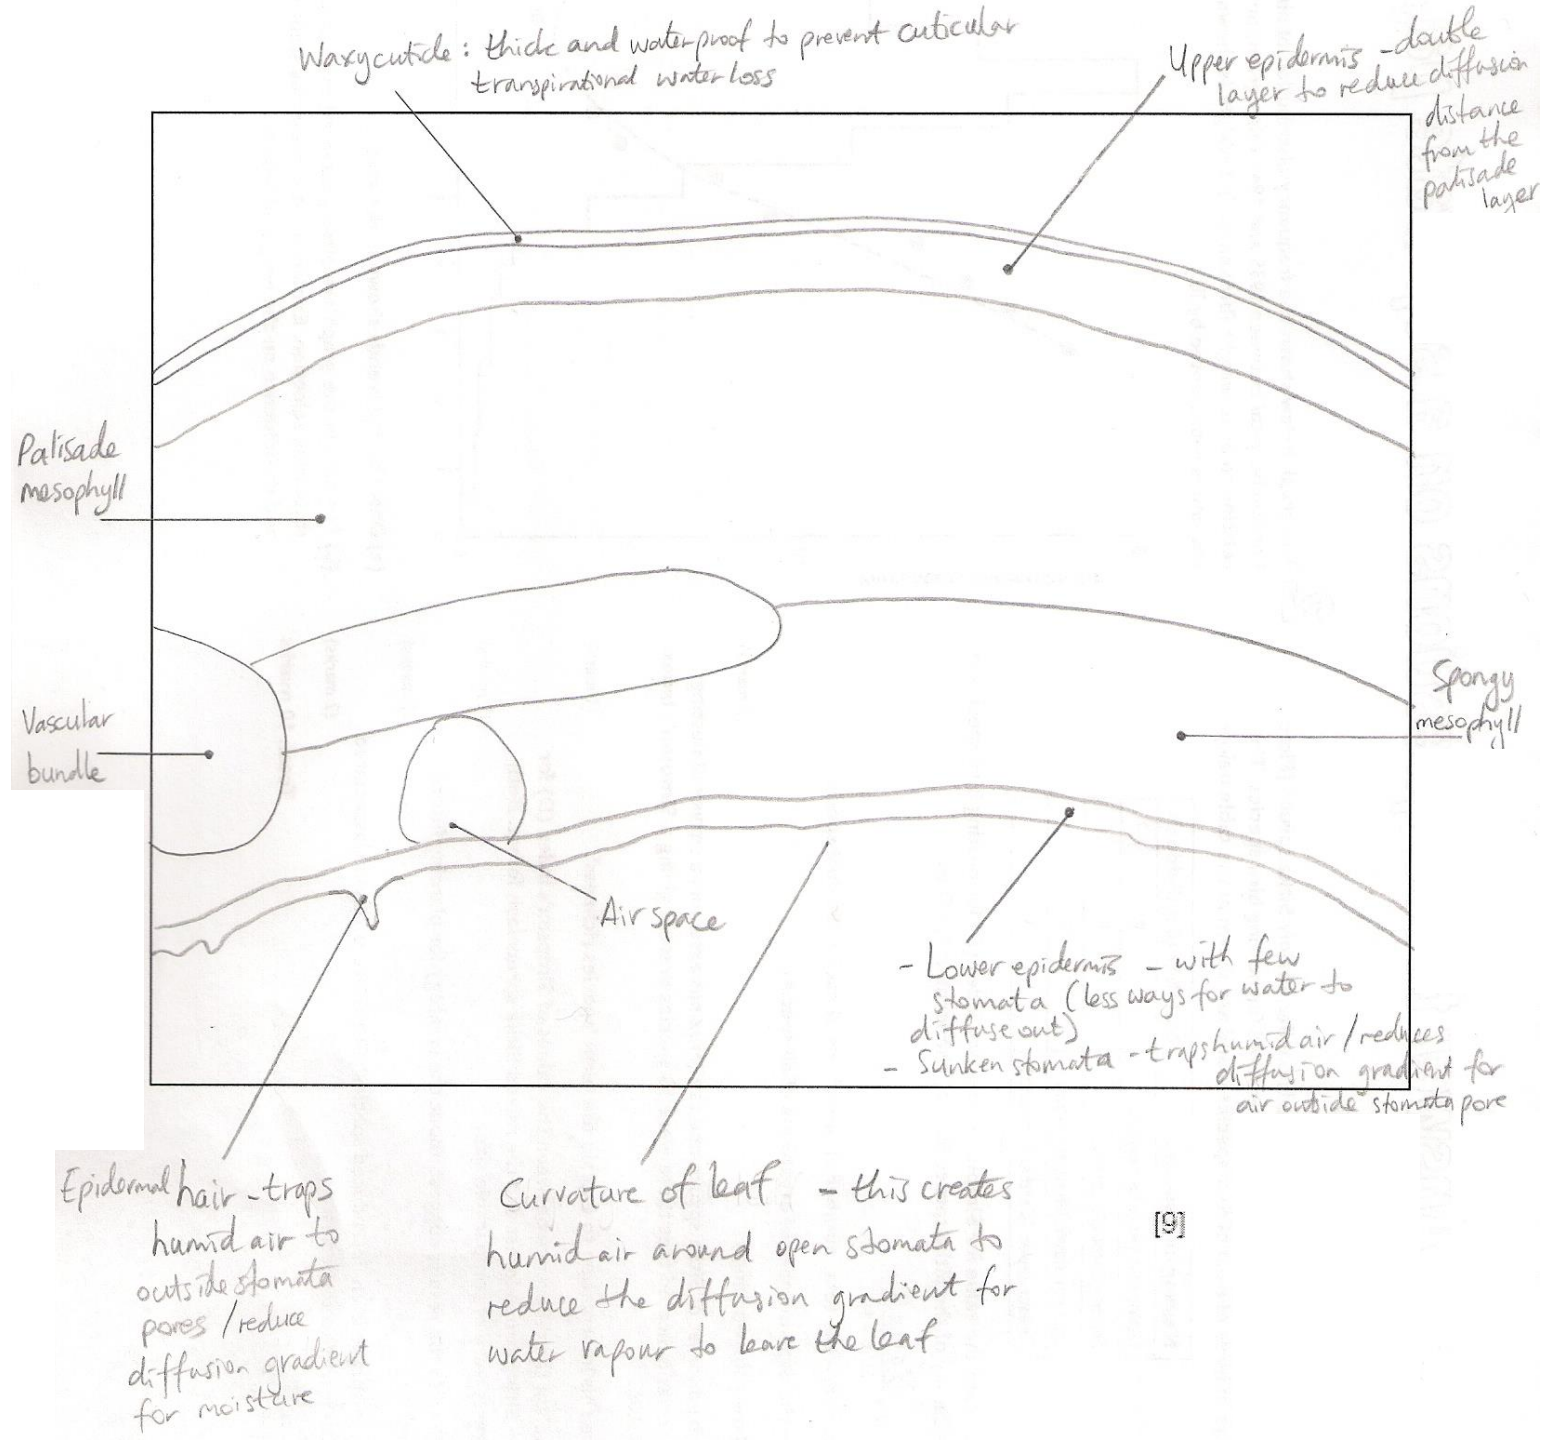 Waxycuticle: thick and waterproof to prevent cuticular
transpirational water loss
Upper epidermis - double
layer to reduce diffusion
distance
from the
palisade
layer
Palisade
mesophyll
Vascular
bundle
Spongy
mesophyll
Air space
- Lower epidermis - with few
stomata (less ways for water to
diffuse out)
- Sunken stomata - traps humid air / reduces
diffusion gradient for
air outside stomata pore
Epidermal hair - traps
humid air to
outside stomata
pores / reduce
diffusion gradient
for moisture
Curvature of leaf - this creates
humid air around open stomata to
reduce the diffusion gradient for
water vapour to leave the leaf
[9]